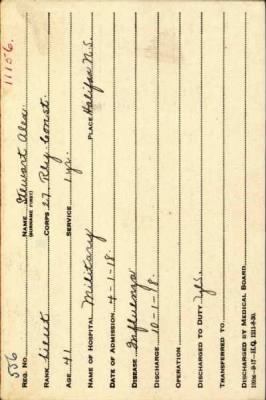 11156.
REG. NO. 556 NAME Stewart Alex.
(SURNAME FIRST)
RANK Lieut CORPS 27. Rly. Const.
AGE 41 SERVICE 1 yr.
NAME OF HOSPITAL Military PLACE Halifax N.S.
DATE OF ADMISSION 4-1-18.
DISEASE Influenza
DISCHARGE 10-1-18.
OPERATION
DISCHARGED TO DUTY Yes.
TRANSFERRED TO
DISCHARGED BY MEDICAL BOARD